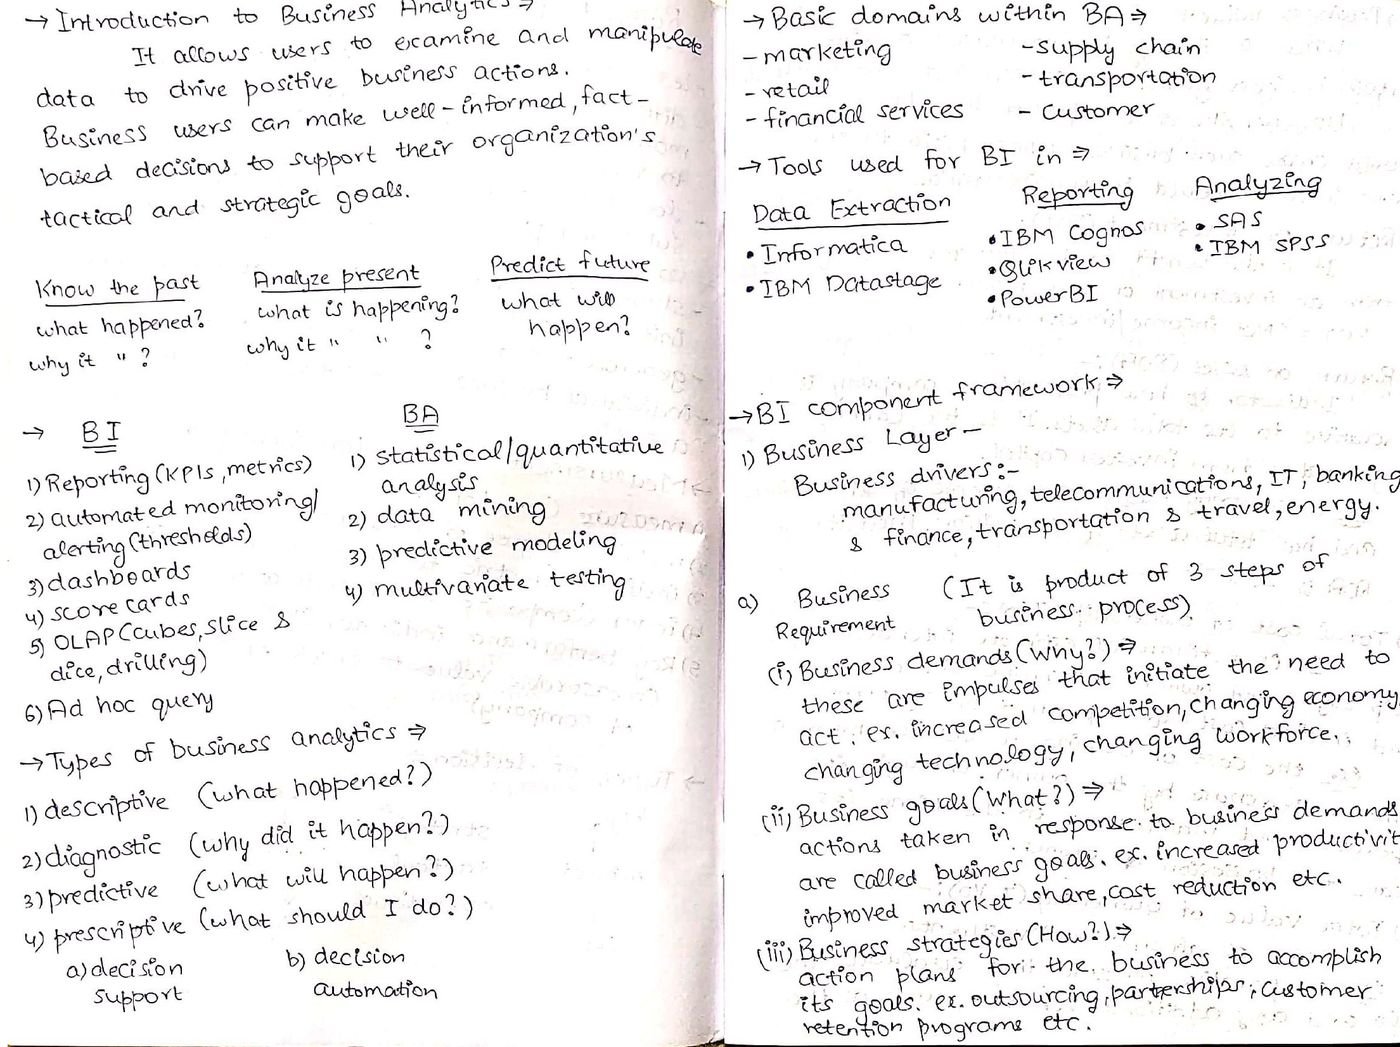 → Introduction to Business Analytics ⇒
It allows users to examine and manipulate
data to drive positive business actions.
Business users can make well-informed, fact-
based decisions to support their organization's
tactical and strategic goals.
Know the past
what happened?
why it " ?
Analyze present
what is happening?
why it " " ?
Predict future
what will
happen?
→ BI
1) Reporting (KPIs, metrics)
2) automated monitoring/
alerting (thresholds)
3) dashboards
4) score cards
5) OLAP (cubes, slice &
dice, drilling)
6) Ad hoc query
BA
1) statistical/quantitative
analysis
2) data mining
3) predictive modeling
4) multivariate testing
→ Types of business analytics ⇒
1) descriptive (what happened?)
2) diagnostic (why did it happen?)
3) predictive (what will happen?)
4) prescriptive (what should I do?)
a) decision
support
b) decision
automation
→ Basic domains within BA ⇒
- marketing
- retail
- financial services
- supply chain
- transportation
- customer
→ Tools used for BI in ⇒
Data Extraction
• Informatica
• IBM Datastage
Reporting
• IBM Cognos
• Qlikview
• PowerBI
Analyzing
• SAS
• IBM SPSS
→ BI component framework ⇒
1) Business Layer -
Business drivers :-
manufacturing, telecommunications, IT, banking
& finance, transportation & travel, energy.
a) Business (It is product of 3 steps of
Requirement business process)
(i) Business demands (Why?) ⇒
these are impulses that initiate the need to
act. ex. increased competition, changing economy,
changing technology, changing workforce.
(ii) Business goals (What?) ⇒
actions taken in response to business demands
are called business goals. ex. increased productivit
improved market share, cost reduction etc.
(iii) Business strategies (How?) ⇒
action plans for the business to accomplish
its goals. ex. outsourcing, parterships, customer
retention programs etc.